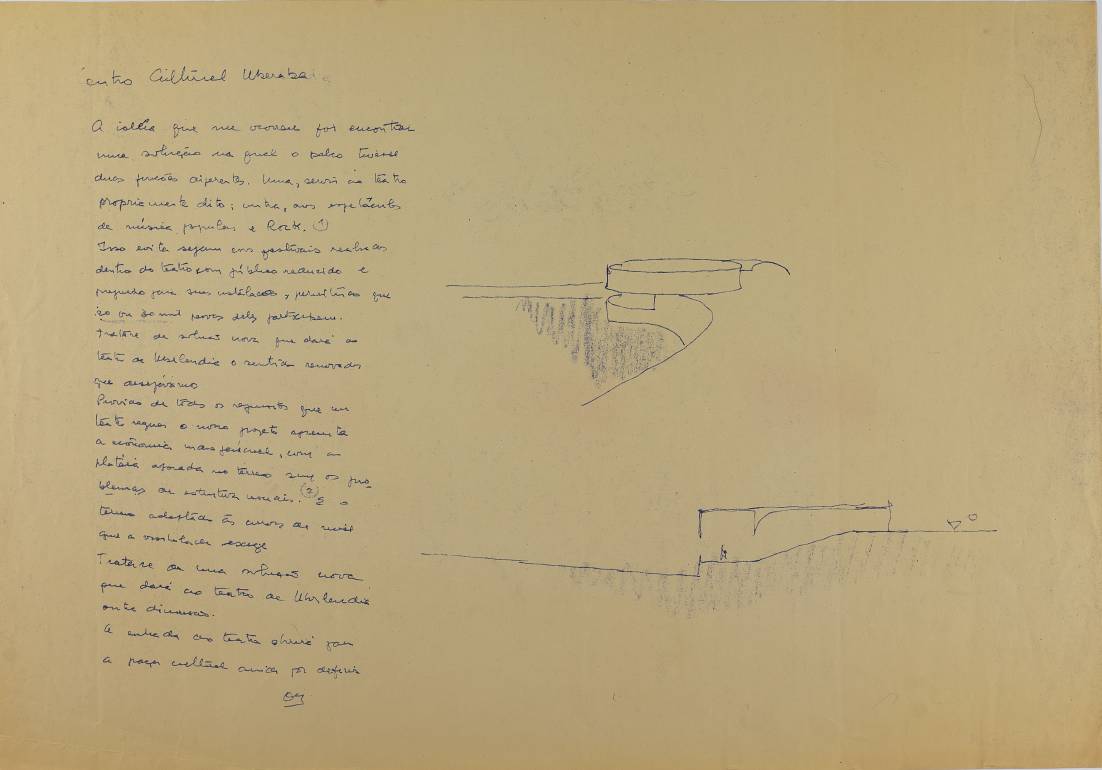 entro Cultural Uberaba
A idéia que me ocorreu foi encontrar
uma solução na qual o palco tivesse
duas funções diferentes. Uma, servir ao teatro
propriamente dito; outra, aos espetáculos
de música popular e Rock. (1)
Isso evita sejam realizados
dentro do teatro com público reduzido e
pequeno para suas, permitindo que
20 ou 30 mil deles participem.
Tratase de solução nova que dará ao
teatro de Uberlandia o sentido renovado
que desejávamos
Provido de todos os requisitos que um
teatro requer o novo projeto apresenta
a economia mais, com a
platéia apoiada no terreno sem os pro-
blemas de estrutura usuais. (2) E o
terreno adaptado às curvas de nivel
que a visibilidade exige
Tratase de uma solução nova
que dará ao teatro de Uberlandia
outra dimensão.
A entrada do teatro abrirá para
a praça cultural ainda por definir
0